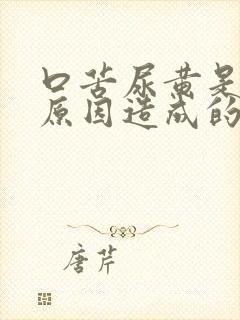 口苦尿黄是
原因造成的
唐芹